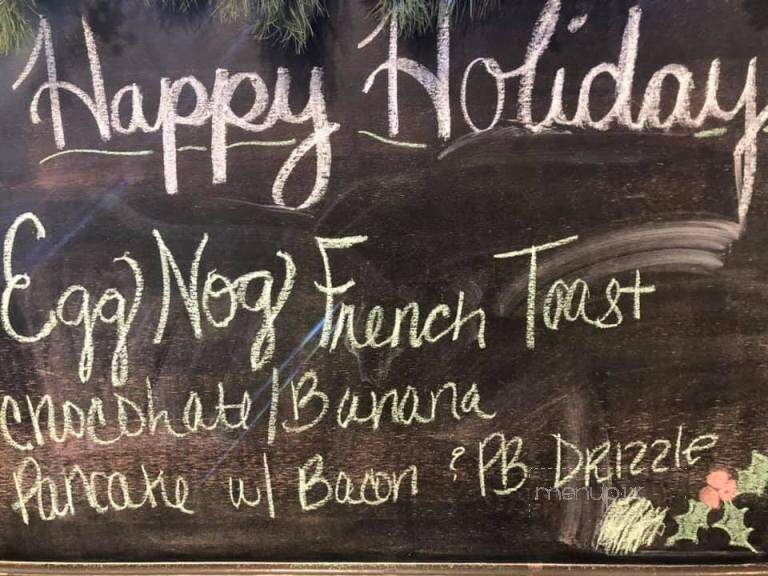 Happy Holiday
Egg Nog French Toast
Chocohate/Banana
Pancake w/ Bacon & PB Drizzle
menupix